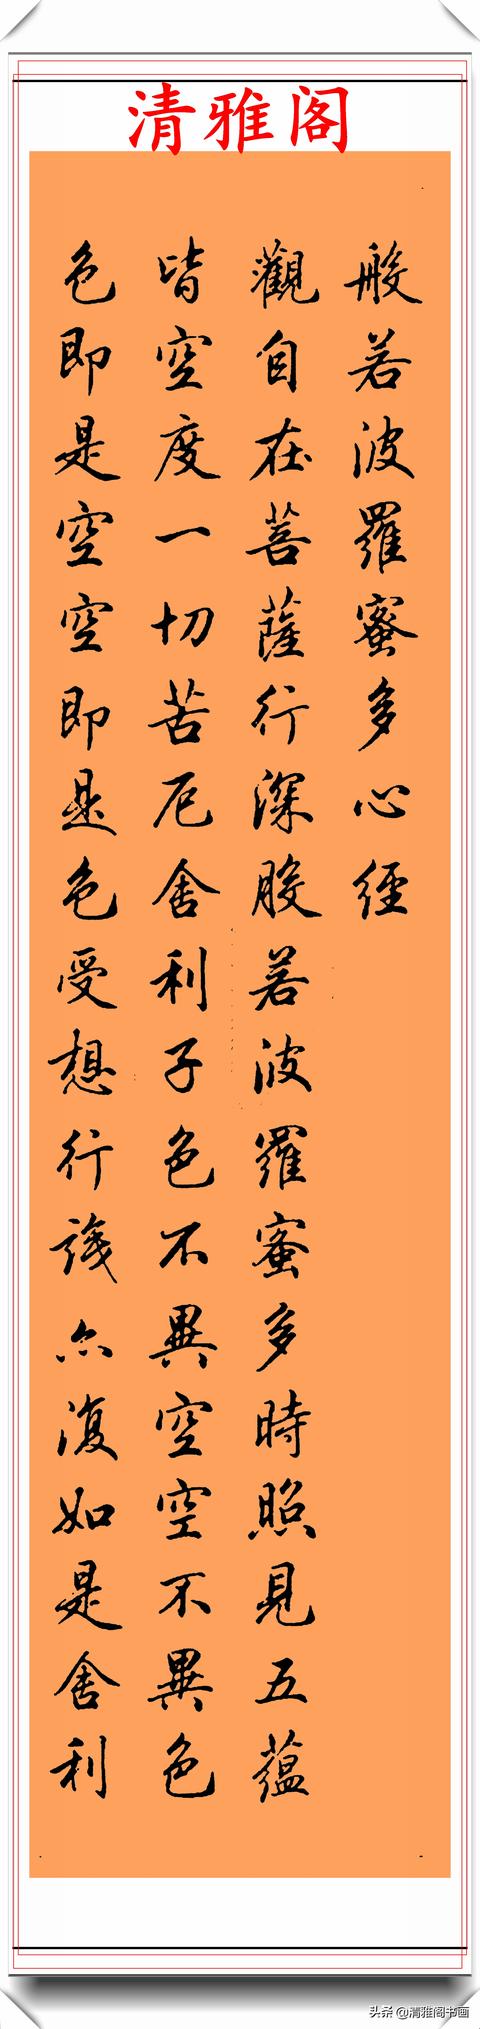 清雅阁
般若波羅蜜多心經
觀自在菩薩行深般若波羅蜜多時照見五蘊
皆空度一切苦厄舍利子色不異空空不異色
色即是空空即是色受想行識亦復如是舍利
头条@清雅阁书画